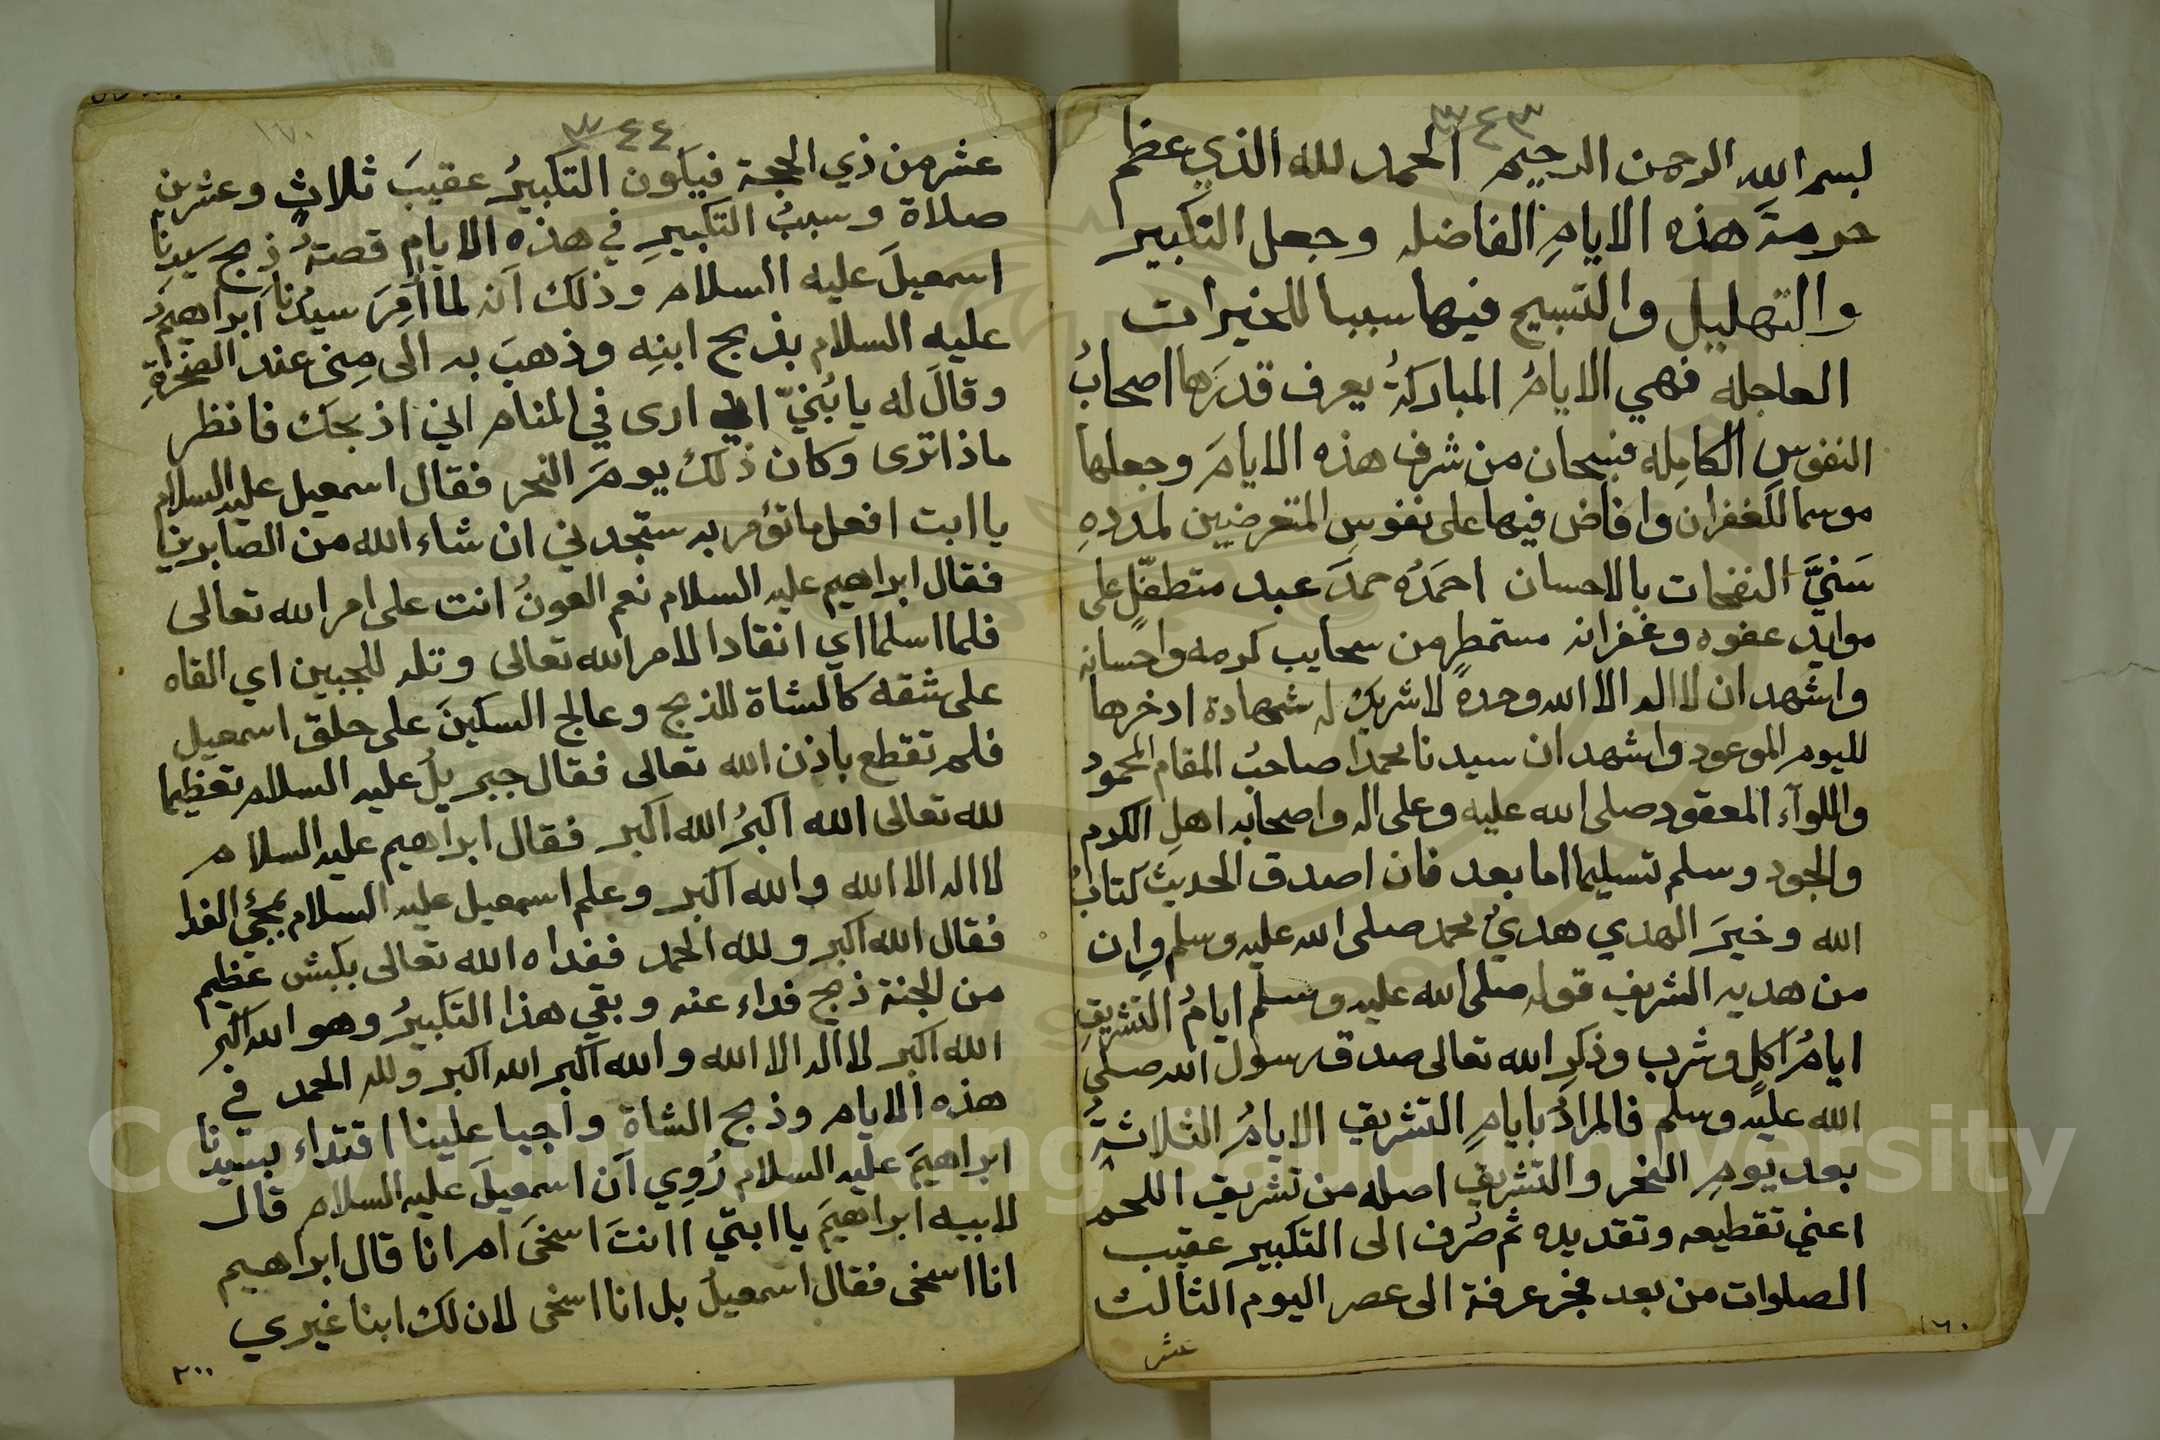 ٣٤٣
بسم الله الرحمن الرحيم الحمد لله الذي عظم
حرمةَ هذه الايامِ الفاضله وجعل التكبير
والتهليل والتسبيح فيها سببا للخيرات
العاجله فهي الايامُ المباركةُ يعرف قدرَها اصحابُ
النفوسِ الكامِله فسبحان من شرف هذه الايامَ وجعلها
موسما للغفران وافاض فيها على نفوسِ المتعرضيين لمددهِ
سَنيَّ النفحات بالاحسان احمَدُه حمدَ عبد متطفّلٍ على
موايد عفوه وغفرانه مستمطرٍ من سحايب كرمه واحسانه
واشهد ان لا اله الا الله وحده لا شريك له شهادة ادخرها
لليوم الموعود واشهد ان سيدنا محمدا صاحبُ المقام المحمود
واللوآء المعقود صلى الله عليه وعلى اله واصحابه اهلِ الكرم
والجود وسلم تسليما اما بعد فان اصدق الحديث كتابُ
الله وخيرَ الهدي هديُ محمد صلى الله عليه وسلم وان
من هديه الشريف قوله صلى الله عليه وسلم ايامُ التشريقِ
ايامُ اكلٍ وشرب وذكرِ الله تعالى صدق رسول الله صلى
الله عليه وسلم فالمرادُ بايامِ التشريق الايامُ الثلاثةُ
بعد يومِ النحر والتشريق اصله من تشريق اللحم
اعني تقطيعه وتقديده ثم صُرف الى التكبير عقيب
الصلوات من بعد فجر عرفة الى عصر اليوم الثالث
عشر
١٦٠
٣٤٤
١٧٠
عشر من ذي الحجة فيكون التكبيرُ عقيبَ ثلاثٍ وعشرين
صلاة وسببُ التكبيرِ في هذه الايامِ قصةُ ذبح سيدنا
اسمعيلَ عليه السلام وذلك انه لما اُمِرَ سيدُنا ابراهيمُ
عليه السلام بذبح ابنِه وذهبَ به الى مِنى عند الصخرةِ
وقالَ له يا بُنيّ اني ارى في المنام اني اذبحك فانظر
ماذا ترى وكان ذلك يومَ النحر فقال اسمعيل عليه السلام
يا ابت افعل ما تؤمر به ستجدني ان شاء الله من الصابرين
فقال ابراهيم عليه السلام نعم العونُ انت على امر الله تعالى
فلما اسلما اي انقادا لامر الله تعالى وتله للجبين اي القاه
على شقه كالشاة للذبح وعالج السكينَ على حلق اسمعيل
فلم تقطع باذن الله تعالى فقال جبريلُ عليه السلام تعظيما
لله تعالى الله اكبرُ الله اكبر فقال ابراهيم عليه السلام
لا اله الا الله والله اكبر وعلم اسمعيل عليه السلام بمجئ الفدا
فقال الله اكبر ولله الحمد ففداه الله تعالى بكبش عظيم
من الجنة ذبح فداء عنه وبقي هذا التكبيرُ وهو الله اكبر
الله اكبر لا اله الا الله والله اكبر الله اكبر ولله الحمد في
هذه الايام وذبح الشاة واجبا علينا اقتداء بسيدنا
ابراهيمَ عليه السلام رُوِي اَن اسمعيلَ عليه السلام قال
لابيه ابراهيمَ يا ابتي اانتَ اسخىَ ام انا قال ابراهيم
انا اسخى فقال اسمعيلُ بل انا اسخى لان لك ابنا غيري
٢٠٠
Copyright © King Saud University